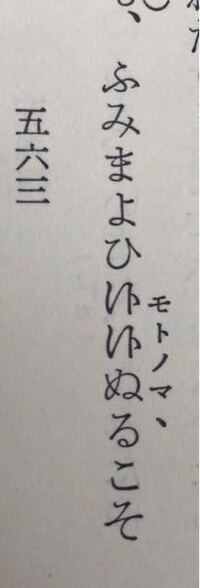 、ふみまよひぬるこそ
モトノマ、
五六三